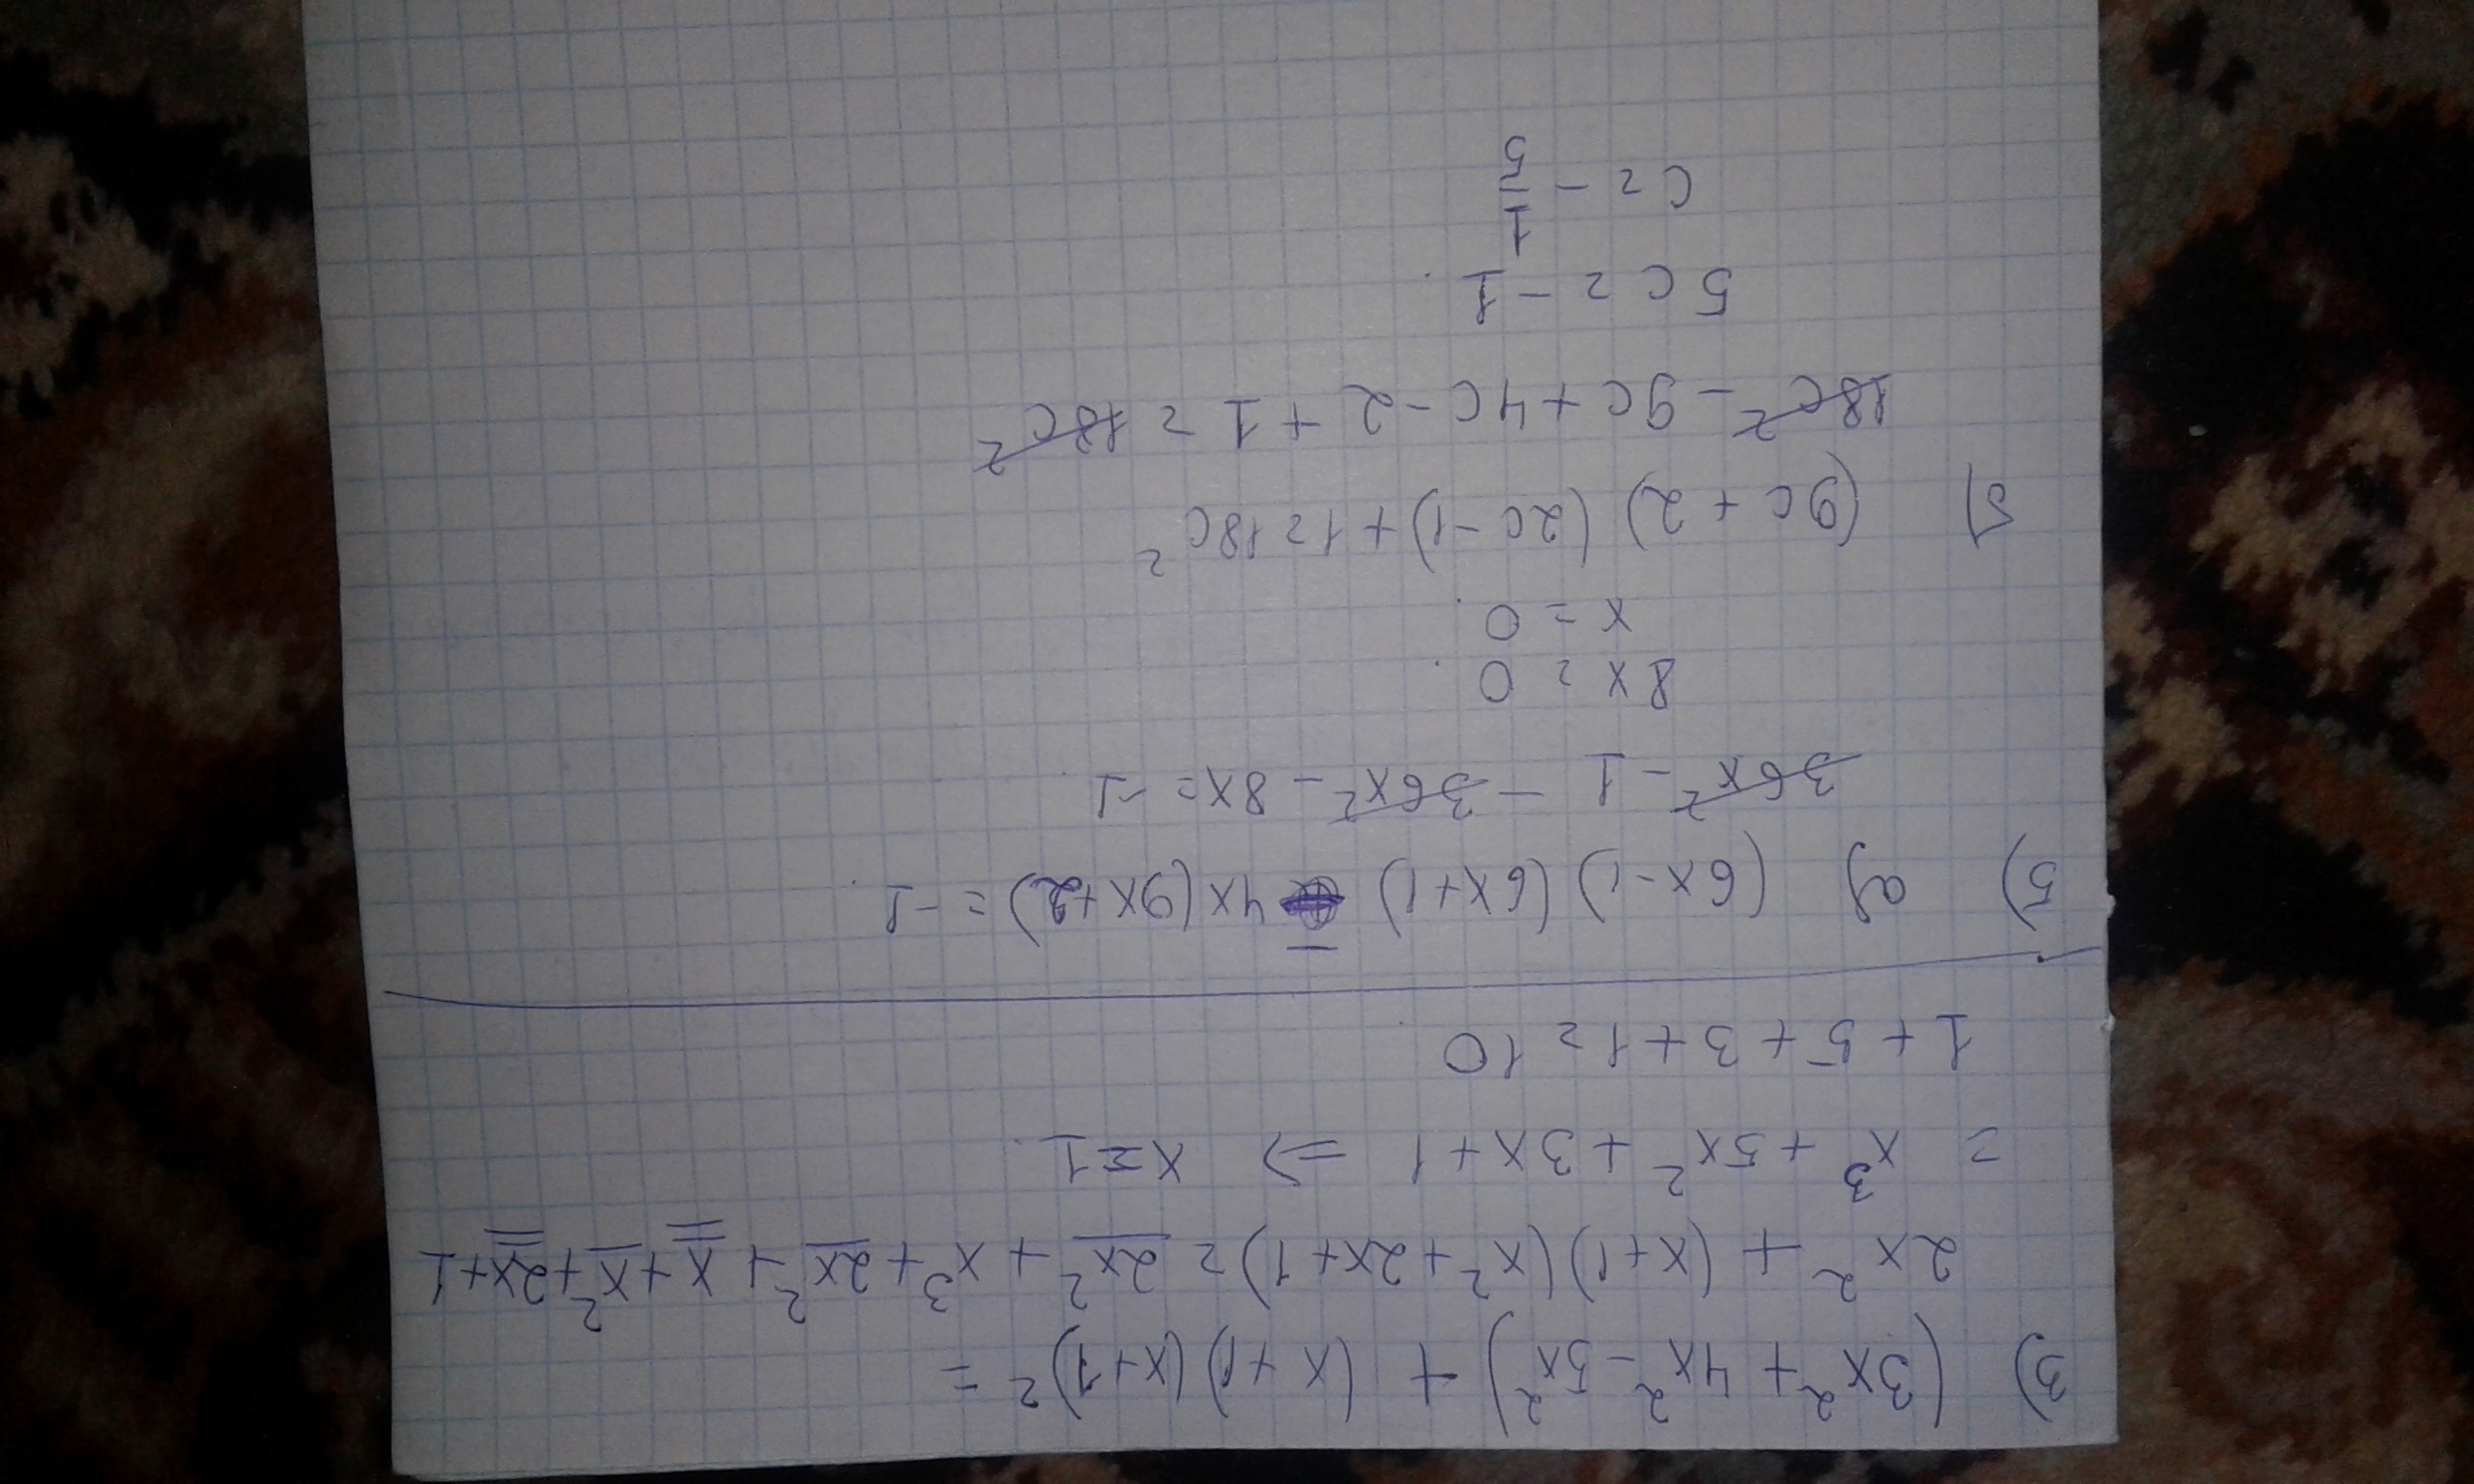 3) (3x² + 4x² - 5x²) + (x+1)(x+1)² =
2x² + (x+1)(x²+2x+1) = 2x² + x³ + 2x² + x + x² + 2x + 1
= x³ + 5x² + 3x + 1 ⇒ x=1
1 + 5 + 3 + 1 = 10
5) a) (6x-1) (6x+1) - 4x(9x+2) = -1
36x² - 1 - 36x² - 8x = -1
8x = 0
x = 0
б) (9c + 2) (2c - 1) + 1 = 18c²
18c² - 9c + 4c - 2 + 1 = 18c²
5c = -1
c = - 1/5